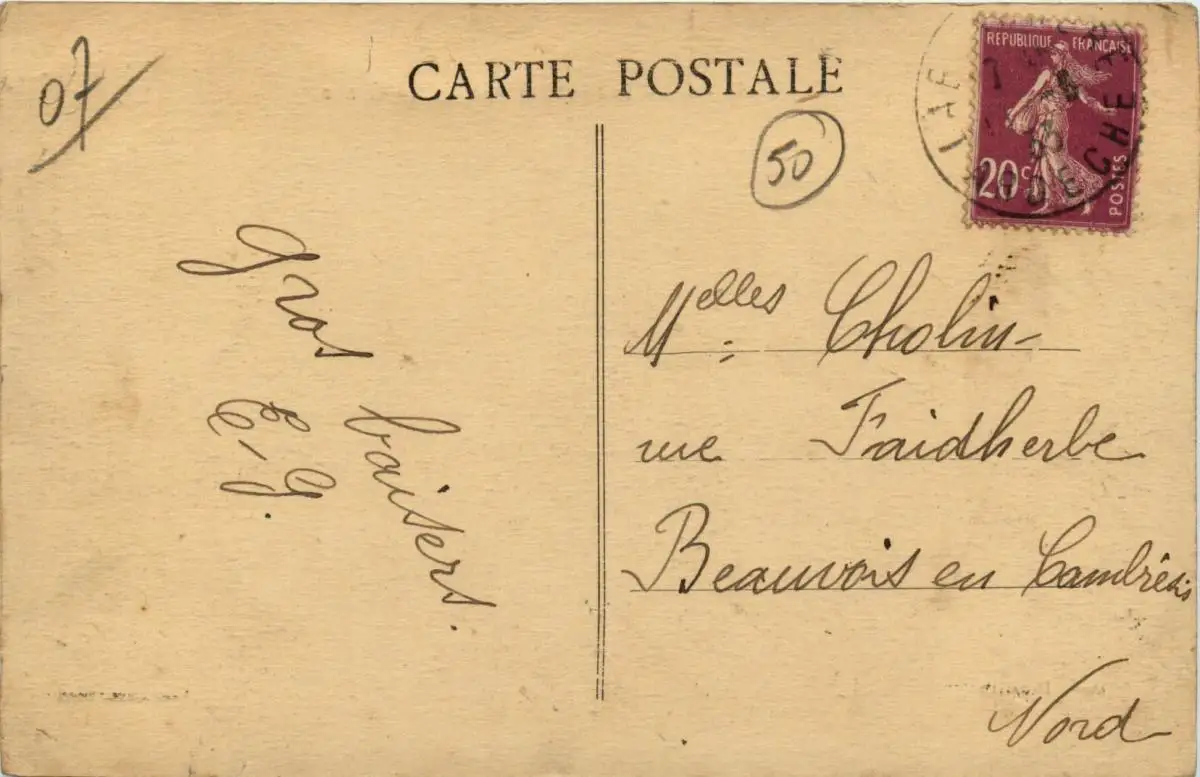 07
CARTE POSTALE
50
REPUBLIQUE FRANÇAISE
20c
POSTES
gros
baisers.
E-G.
Melles Cholin-
rue Faidherbe
Beauvois en Cambrésis
Nord